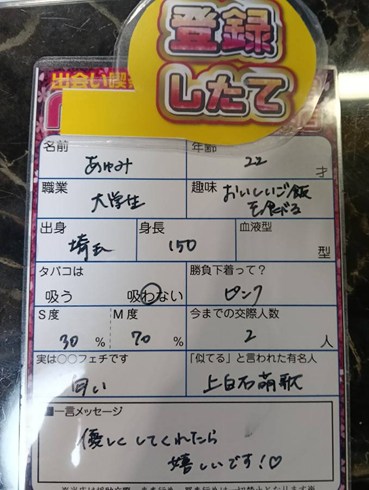 登録
したて
出会い喫
店
名前
あゆみ
年齢
22
才
職業
大学生
趣味
おいしいご飯
を食べる
出身
埼玉
身長
150
血液型
型
タバコは
吸う 吸わない
勝負下着って？
ピンク
S度
30 %
M度
70 %
今までの交際人数
2 人
実は○○フェチです
匂い
「似てる」と言われた有名人
上白石萌歌
■一言メッセージ
優しくしてくれたら
嬉しいです！♡